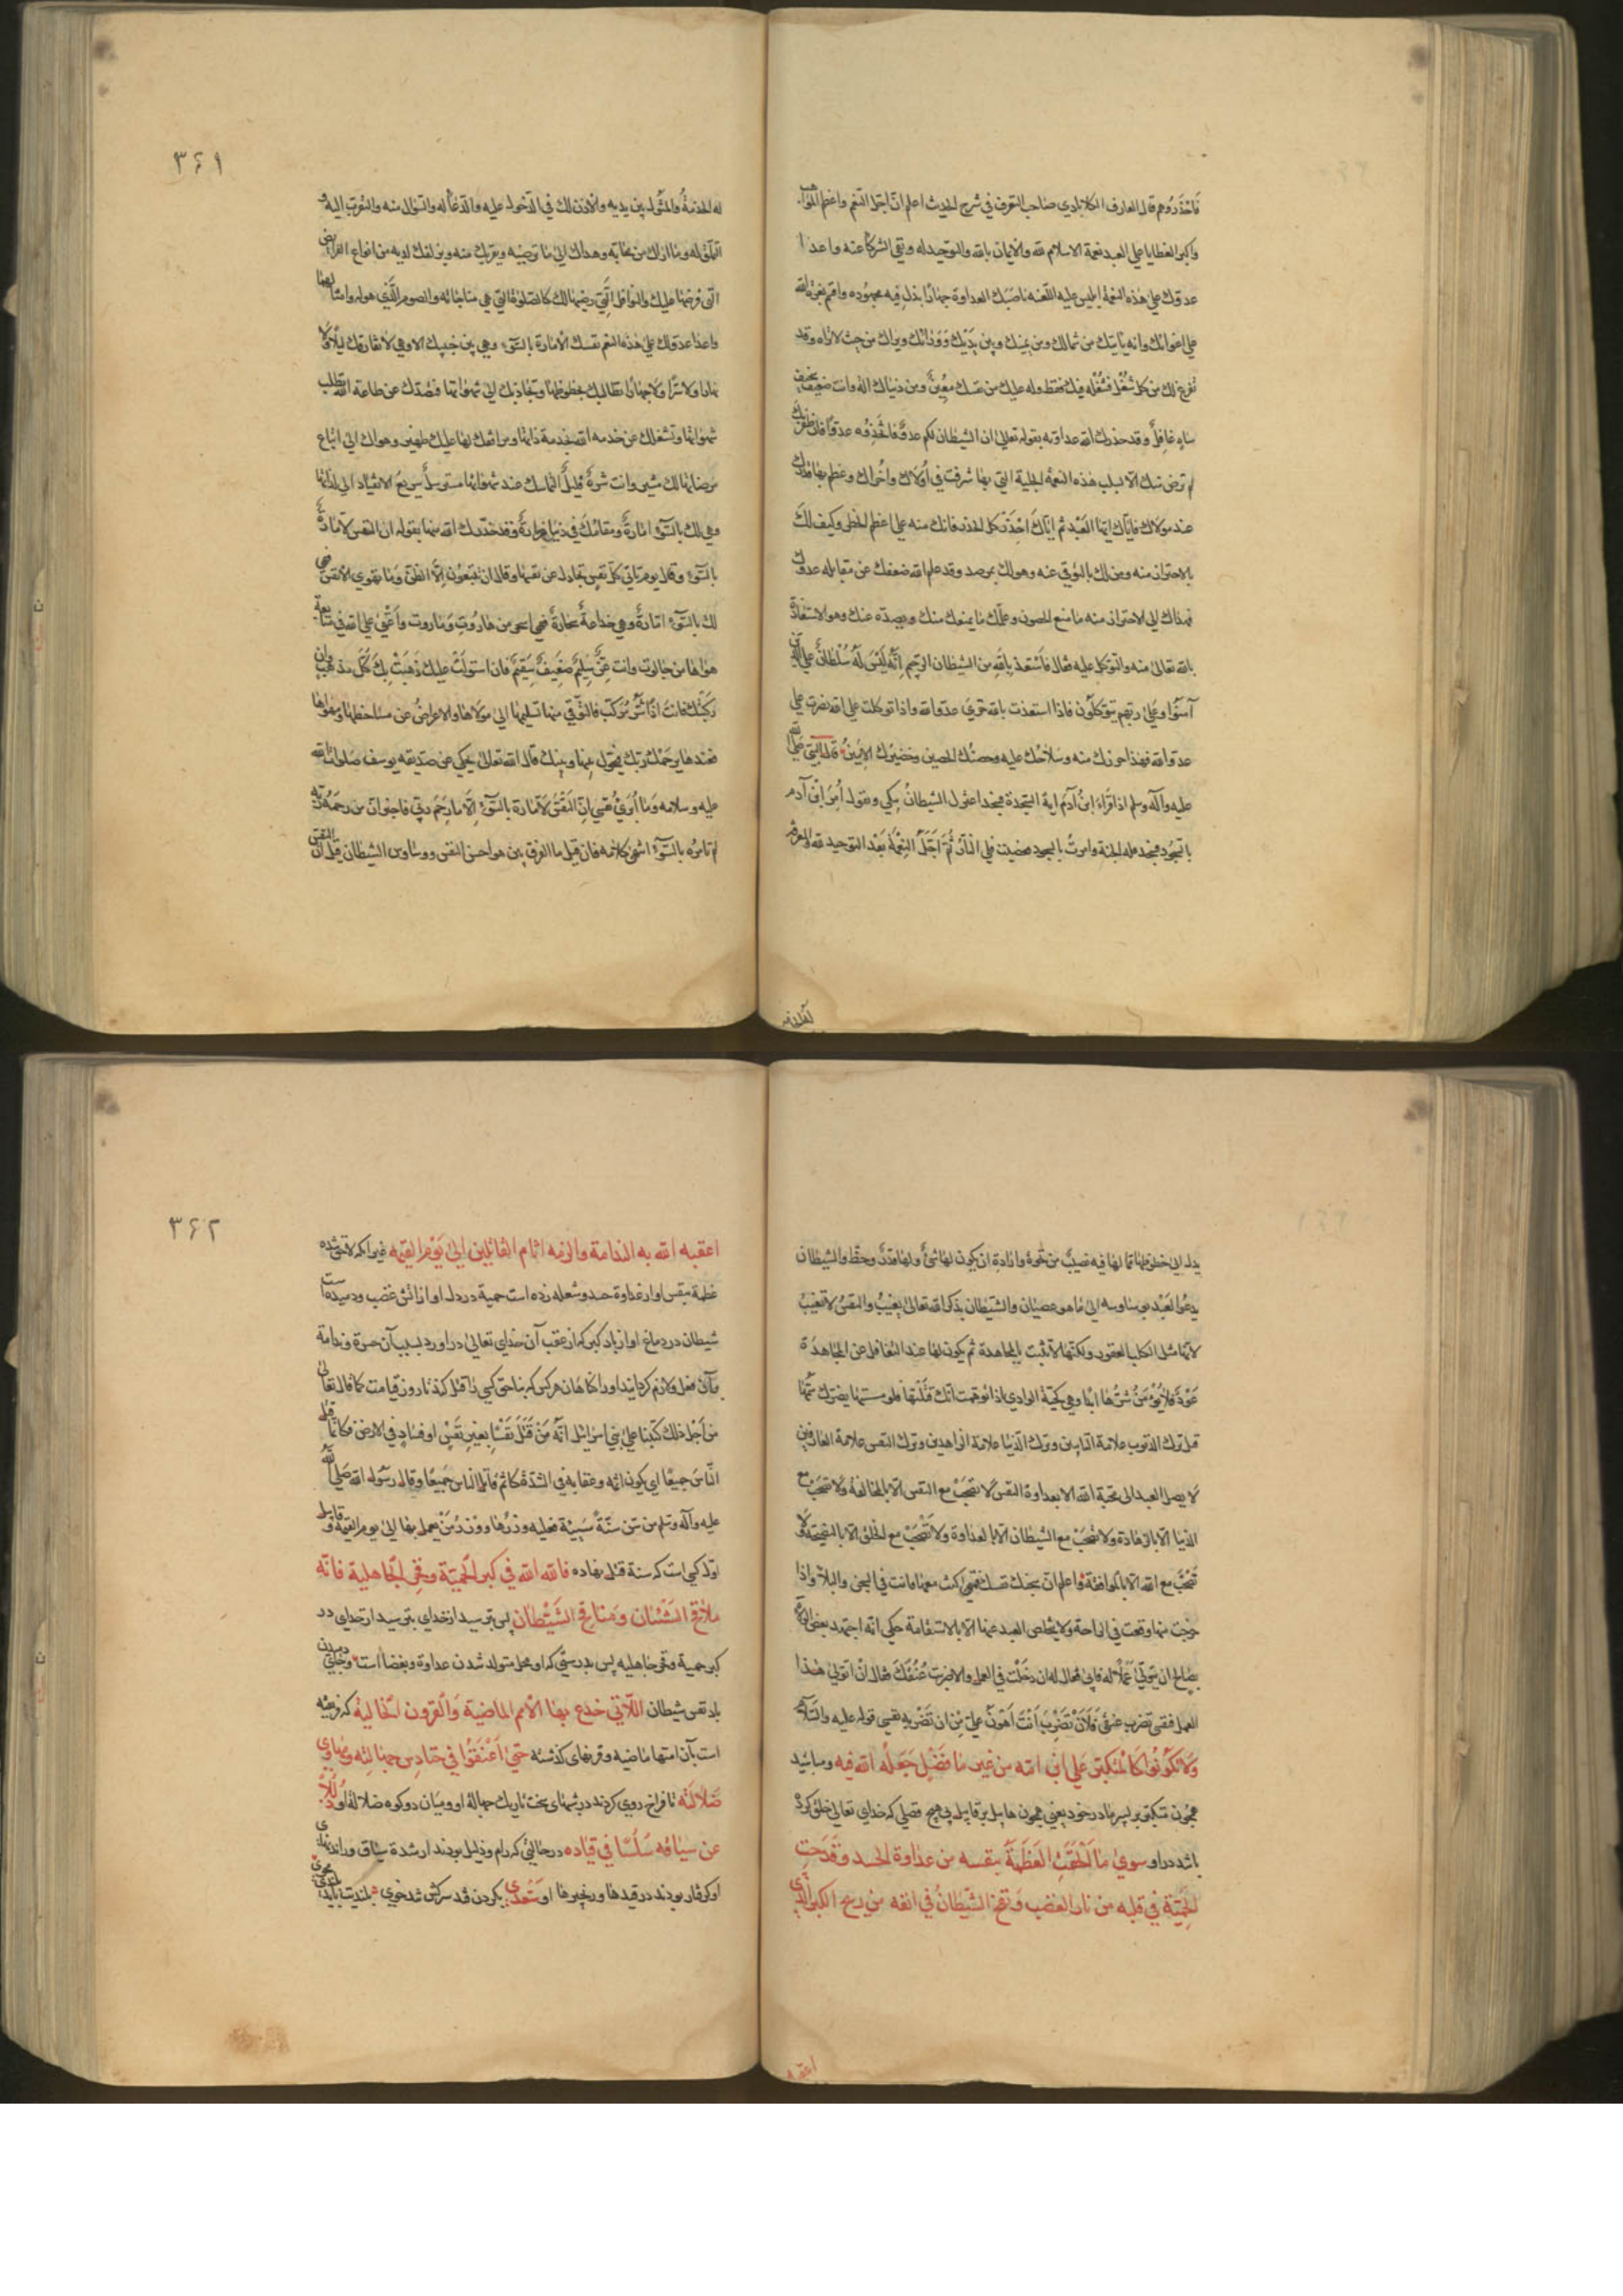 فاحذروهم قال العارف الكلابادي صاحب التعرف في شرح الحديث اعلم ان اجل النعم واعظم المواهب
واكبر العطايا على العبد نعمة الاسلام لله والايمان بالله والتوحيد له ونفي الشركا عنه واعدا
عدوك على هذه النعمة ابليس عليه اللعنه ناصبك العداوة جهارًا بذل فيه مجهوده واقسم بعزة الله
على اغوائك وانه يأتيك من شمالك ومن يمينك وبين يديك وورائك ويراك من حيث لا تراه وقد
تفرغ لك من كل شغل فشغله فيك فقط وله عليك من نفسك معين ومن دنياك اله وانت ضعيف
ساهٍ غافل وقد حذرك الله عداوته بقوله تعالى ان الشيطان لكم عدو فاتخذوه عدوا فان ظفر بك
لم ترض منك الا بسلب هذه النعمة الجليلة التي بها شرفت في اولاك واخراك وعظم بها قدرك
عند مولاك فاياك ايها العبد ثم اياك احذر كل الحذر فانك منه على اعظم الخطر وكيف لك
بالاحتراز منه ومن لك بالتوقي عنه وهو لك بمرصد وقد علم الله ضعفك عن مقابله عدوك
فهداك الى الاحتراز منه بامنع الحصون وعلمك ما يمنعك منك ويصده عنك وهو الاستعاذة
بالله تعالى منه والتوكل عليه فقال فاستعذ بالله من الشيطان الرجيم انه ليس له سلطان على الذين
آمنوا وعلى ربهم يتوكلون فاذا استعذت بالله قوي عدو الله واذا توكلت على الله نصرت على
عدو الله فهذا حرزك منه وسلاحك عليه وحصنك الحصين وخضيرك الامين قال النبي صلى الله
عليه وآله وسلم اذا قرأ ابن آدم اية السجدة فسجد اعتزل الشيطان يبكي ويقول امر ابن آدم
بالسجود فسجد فله الجنة وامرت بالسجود فعصيت فلي النار ثم اجل النعمة بعد التوحيد لله والمعرفة
له الخدمة والمثول بين يديه والاذن لك في الدخول عليه والدعا له والسؤال منه والتقرب اليه و
التملق له وما ارك من مخابه وهداك الى ما ترضيه ويقربك منه ويزلفك لديه من انواع الفرائض
التي فرضها عليك والنوافل التي رضيها لك كالصلوة التي هي مناجاته والصوم الذي هو له وامثالهما
واعدا عدو لك على هذه النعم نفسك الامارة بالسوء وهي بين جنبيك الا وهي لا تفارقك ليلا ولا
نهارا ولا سرا ولا جهارا تطالبك بحظوظها وتجاذبك الى شهواتها فتصدك عن طاعة الله بطلب
شهواتها وتشغلك عن خدمه الله بخدمة ذاتها ومن اعدك لها عليك ظهير وهواك الى اتباع
مرضاتها لك مشير وانت شره قليل التماسك عند شهواتها مسترسل سريع الانقياد الى لذاتها
وهي لك بالسوء امارة ومقامك في دنيا غرارة وقد حذرك الله منها بقوله ان النفس لامارة
بالسوء وقال يوم تأتي كل نفس تجادل عن نفسها وقال ان يتبعون الا الظن وما تهوى الانفس
لك بالسوء امارة وهي خداعة سحارة فهي اسحر من هاروت وماروت واغنى على الله في متابعة
هواها من جالوت وانت غر سليم ضعيف سقيم فان استولت عليك ذهبت بك كل مذهب وان
ركبتك فانت اذا شر مركب فالتوقي منها تسليمها الى مولاها والاعراض عن مساخطها وهفواتها
فعندها يرحمك ربك فيحول بينها وبينك قال الله تعالى يحكي عن صديقه يوسف صلوات الله
عليه وسلامه وما ابرئ نفسي ان النفس لامارة بالسوء الا ما رحم ربي فاخبر ان من رحمه ربه
لم تامره بالسوء انتهى كلامه فان قيل ما الفرق بين هواجس النفس ووساوس الشيطان قيل ان النفس
٣۶١
يدل الى حظوظها مما لها فيه نصيب من شهوة وارادة ان يكون لها شئ ولها قدر وحظ والشيطان
يدعو العبد بوساوسه الى ما هو عصيان والشيطان بذكر الله تعالى يغيب والنفس لا تغيب
لانها مثل الكلب العقور ولكنها لا تثبت بالمجاهدة ثم يكون لها عند التغافل عن المجاهدة
عود فلا يؤمن شرها ابدا وهي كحية الوادي اذا توهمت انك قتلتها فلو مسستها يضرك سمها
قيل ترك الذنوب علامة التايبين وترك الدنيا علامة الزاهدين وترك النفس علامة العارفين
لا يصل العبد الى محبة الله الا بعداوة النفس لا تصحب مع النفس الا بالمخالفة ولا تصحب مع
الدنيا الا بالزهادة ولا تصحب مع الشيطان الا بالعداوة ولا تصحب مع الخلق الا بالنصيحة ولا
تصحب مع الله الا بالموافقة واعلم ان سجنك نفسك فمتى كنت معها فانت في السجن والبلاء واذا
خرجت منها وقعت في الراحة ولا يتخلص العبد عنها الا بالاستقامة حكي انه اجتهد بعض الولاة
بصالح ان يتولى عملا له فابى فقال له ان دخلت في العمل والا ضربت عنقك فقال ان اتولى هذا
العمل فنفسي تضرب عنقي فلان تضرب انت اهون علي من ان تضربه نفسي قوله عليه السلام
ولا تكونوا كالمتكبر على ابن امه من غير ما فضل جعله الله فيه ومباشيد
همچون متكبر بر پسر مادر خود يعني همچون هابيل بر قابيل بى هيچ فضلى كه خداى تعالى خلق كرده
باشد در او سوى ما الحقت العظمة بنفسه من عداوة الحسد وقدحت
الحمية في قلبه من نار الغضب ونفخ الشيطان في انفه من ريح الكبر الذي
اعقبه الله به الندامة والزمه اثام القاتلين الى يوم القيمه غير آنكه لاحق شده
عظمة بنفس او از عداوة حسد و شعله زده است حمية در دل او از آتش غضب و دميده است
شيطان در دماغ او از باد كبر كه از عقب آن خداى تعالى در آورد بسبب آن حسرة و ندامة
بآن فعل و لازم گردانيد او را گناهان هر كس كه بناحق كسى را قتل كند تا روز قيامت كما قال تعالى
من اجل ذلك كتبنا على بني اسرائيل انه من قتل نفسا بغير نفس او فساد في الارض فكانما قتل
الناس جميعا اي يكون اثمه وعقابه في الشدة كاثم قاتل الناس جميعا وقال رسول الله صلى الله
عليه وآله وسلم من سن سنة سيئة فعليه وزرها ووزر من يعمل بها الى يوم القيمة و قابيل
اول كسى است كه سنة قتل نهاده فالله الله في كبر الحمية وفخر الجاهلية فانه
ملاقح الشنئان ومنافخ الشيطان پس بترسيد از خداي بترسيد از خداي در
كبر حمية و فخر جاهليه پس بدرستى كه او محل متولد شدن عداوة و بغضا است و جاى دميدن
باد نفس شيطان اللاتي خدع بها الامم الماضية والقرون الخالية كه فريفته
است بآن امتها ماضيه و قرنهاى گذشته حتى اعنقوا في حنادس جهالته ومهاوي
ضلالته تا فراخ روى كردند در شبهاى سخت تاريك جهالة او و ميان دو كوه ضلالة او ذللا
عن سياقه سلسا في قياده در حالتى كه رام و ذليل بودند از شدة سياق و راندن
او گرفتار بودند در قيدها و زنجيرها او
٣۶٢